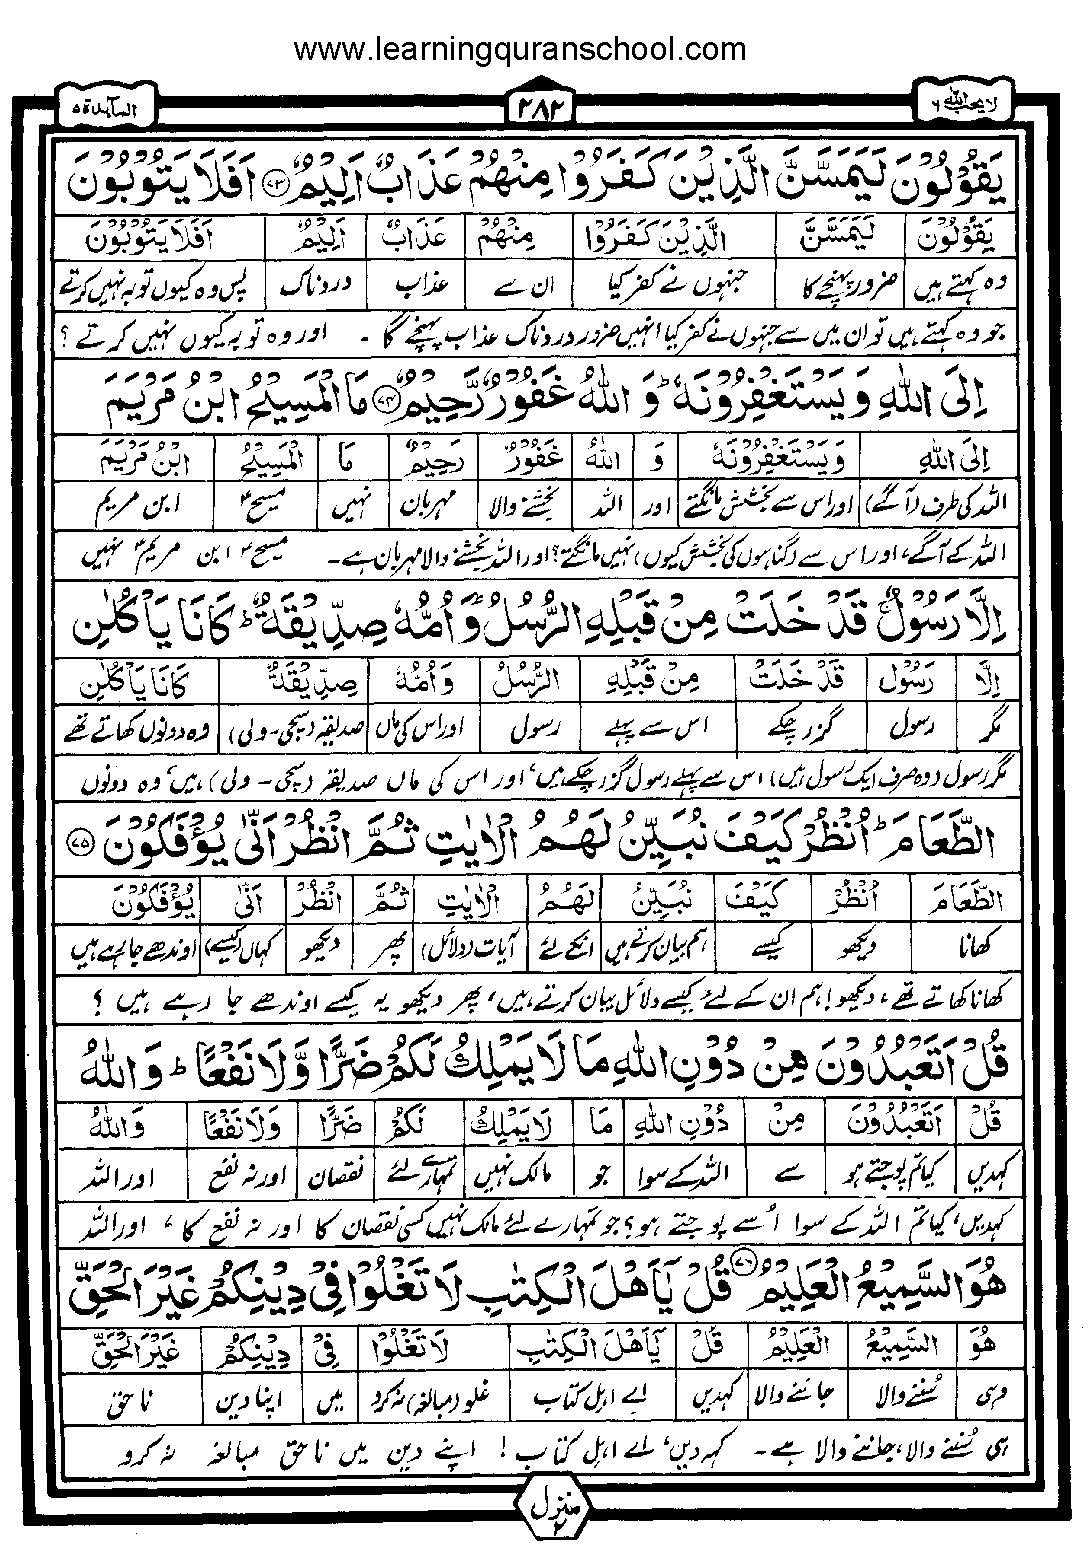 www.learningquranschool.com
المآئدة ۵
۲۸۲
لا یحب اللہ ۶
یَقُوْلُوْنَ لَیَمَسَّنَّ الَّذِیْنَ كَفَرُوْا مِنْهُمْ عَذَابٌ اَلِیْمٌ ﴿۷۳﴾ اَفَلَا یَتُوْبُوْنَ
یَقُوْلُوْنَ لَیَمَسَّنَّ الَّذِیْنَ كَفَرُوْا مِنْهُمْ عَذَابٌ اَلِیْمٌ اَفَلَا یَتُوْبُوْنَ
وہ کہتے ہیں ضرور پہنچے گا جنہوں نے کفر کیا ان سے عذاب دردناک پس وہ کیوں توبہ نہیں کرتے
جو وہ کہتے ہیں تو ان میں سے جنہوں نے کفر کیا انہیں ضرور دردناک عذاب پہنچے گا ۔ اور وہ توبہ کیوں نہیں کرتے ؟
اِلَی اللّٰهِ وَ یَسْتَغْفِرُوْنَهٗ ؕ وَ اللّٰهُ غَفُوْرٌ رَّحِیْمٌ ﴿۷۴﴾ مَا الْمَسِیْحُ ابْنُ مَرْیَمَ
اِلَی اللّٰهِ وَ یَسْتَغْفِرُوْنَهٗ وَ اللّٰهُ غَفُوْرٌ رَحِیْمٌ مَا الْمَسِیْحُ ابْنُ مَرْیَمَ
اللہ کی طرف (آگے) اور اس سے بخشش مانگتے اور اللہ بخشنے والا مہربان نہیں مسیح؏ ابن مریم
اللہ کے آگے، اور اس سے (گناہوں کی بخشش کیوں) نہیں مانگتے؟ اور اللہ بخشنے والا مہربان ہے۔ مسیحؑ ابن مریمؑ نہیں
اِلَّا رَسُوْلٌ ۚ قَدْ خَلَتْ مِنْ قَبْلِهِ الرُّسُلُ ؕ وَ اُمُّهٗ صِدِّیْقَةٌ ؕ كَانَا یَاْكُلٰنِ
اِلَّا رَسُوْلٌ قَدْ خَلَتْ مِنْ قَبْلِهِ الرُّسُلُ وَ اُمُّهٗ صِدِّیْقَةٌ كَانَا یَاْكُلٰنِ
مگر رسول گزر چکے اس سے پہلے رسول اور اس کی ماں صدیقہ (سچی - ولی) وہ دونوں کھاتے تھے
مگر رسول (وہ صرف ایک رسول ہیں) اس سے پہلے رسول گزر چکے ہیں، اور اس کی ماں صدیقہ (سچی - ولی) ہیں، وہ دونوں
الطَّعَامَ ؕ اُنْظُرْ كَیْفَ نُبَیِّنُ لَهُمُ الْاٰیٰتِ ثُمَّ انْظُرْ اَنّٰی یُؤْفَكُوْنَ ﴿۷۵﴾
الطَّعَامَ اُنْظُرْ كَیْفَ نُبَیِّنُ لَهُمُ الْاٰیٰتِ ثُمَّ انْظُرْ اَنّٰی یُؤْفَكُوْنَ
کھانا دیکھو کیسے ہم بیان کرتے ہیں انکے لئے آیات (دلائل) پھر دیکھو کہاں (کیسے) اوندھے جا رہے ہیں
کھانا کھاتے تھے، دیکھو! ہم ان کے لئے کیسے دلائل بیان کرتے ہیں، پھر دیکھو یہ کیسے اوندھے جا رہے ہیں ؟
قُلْ اَتَعْبُدُوْنَ مِنْ دُوْنِ اللّٰهِ مَا لَا یَمْلِكُ لَكُمْ ضَرًّا وَّ لَا نَفْعًا ؕ وَ اللّٰهُ
قُلْ اَتَعْبُدُوْنَ مِنْ دُوْنِ اللّٰهِ مَا لَا یَمْلِكُ لَكُمْ ضَرًّا وَلَا نَفْعًا وَاللّٰهُ
کہدیں کیا تم پوجتے ہو سے اللہ کے سوا جو مالک نہیں تمہارے لئے نقصان اور نہ نفع اور اللہ
کہدیں، کیا تم اللہ کے سوا اُسے پوجتے ہو؟ جو تمہارے لئے مالک نہیں کسی نقصان کا اور نہ نفع کا، اور اللہ
هُوَ السَّمِیْعُ الْعَلِیْمُ ﴿۷۶﴾ قُلْ یٰۤاَهْلَ الْكِتٰبِ لَا تَغْلُوْا فِیْ دِیْنِكُمْ غَیْرَ الْحَقِّ
هُوَ السَّمِیْعُ الْعَلِیْمُ قُلْ یٰۤاَهْلَ الْكِتٰبِ لَا تَغْلُوْا فِیْ دِیْنِكُمْ غَیْرَ الْحَقِّ
وہی سُننے والا جاننے والا کہدیں اے اہل کتاب غلو (مبالغہ) نہ کرو میں اپنا دین ناحق
ہی سُننے والا، جاننے والا ہے۔ کہہ دیں، اے اہل کتاب ! اپنے دین میں ناحق مبالغہ نہ کرو
منزل ۲